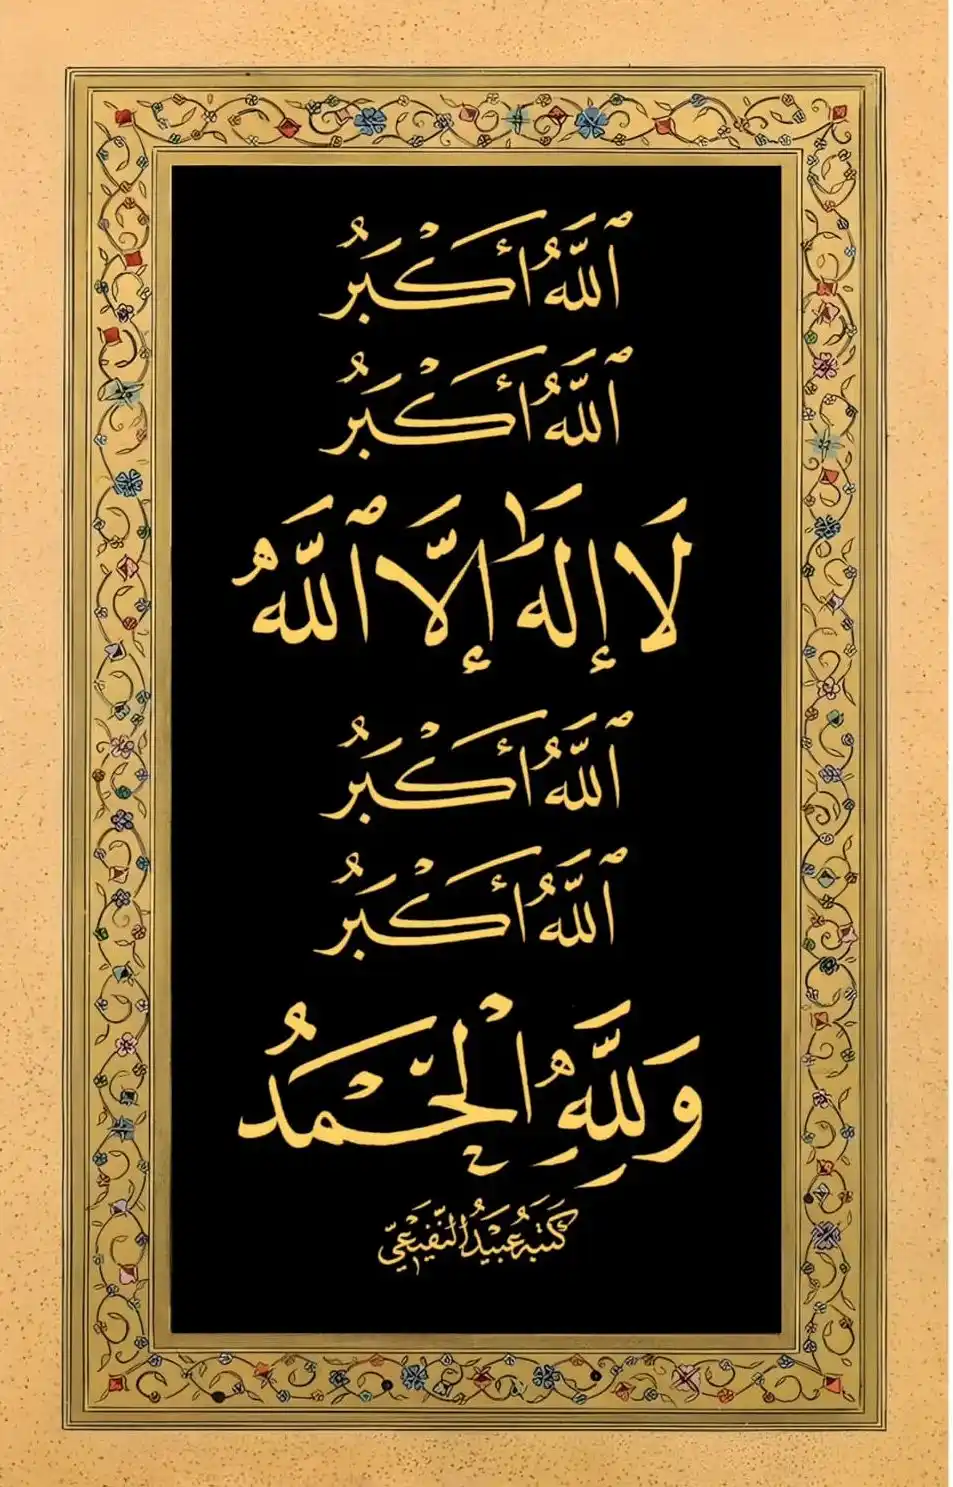 ٱللَّهُ أَكْبَرُ
ٱللَّهُ أَكْبَرُ
لَا إِلَهَ إِلَّا ٱللَّهُ
ٱللَّهُ أَكْبَرُ
ٱللَّهُ أَكْبَرُ
وَلِلَّهِ الْحَمْدُ
كَتَبَهُ عُبَيْدُ النُّفَيْعِيّ